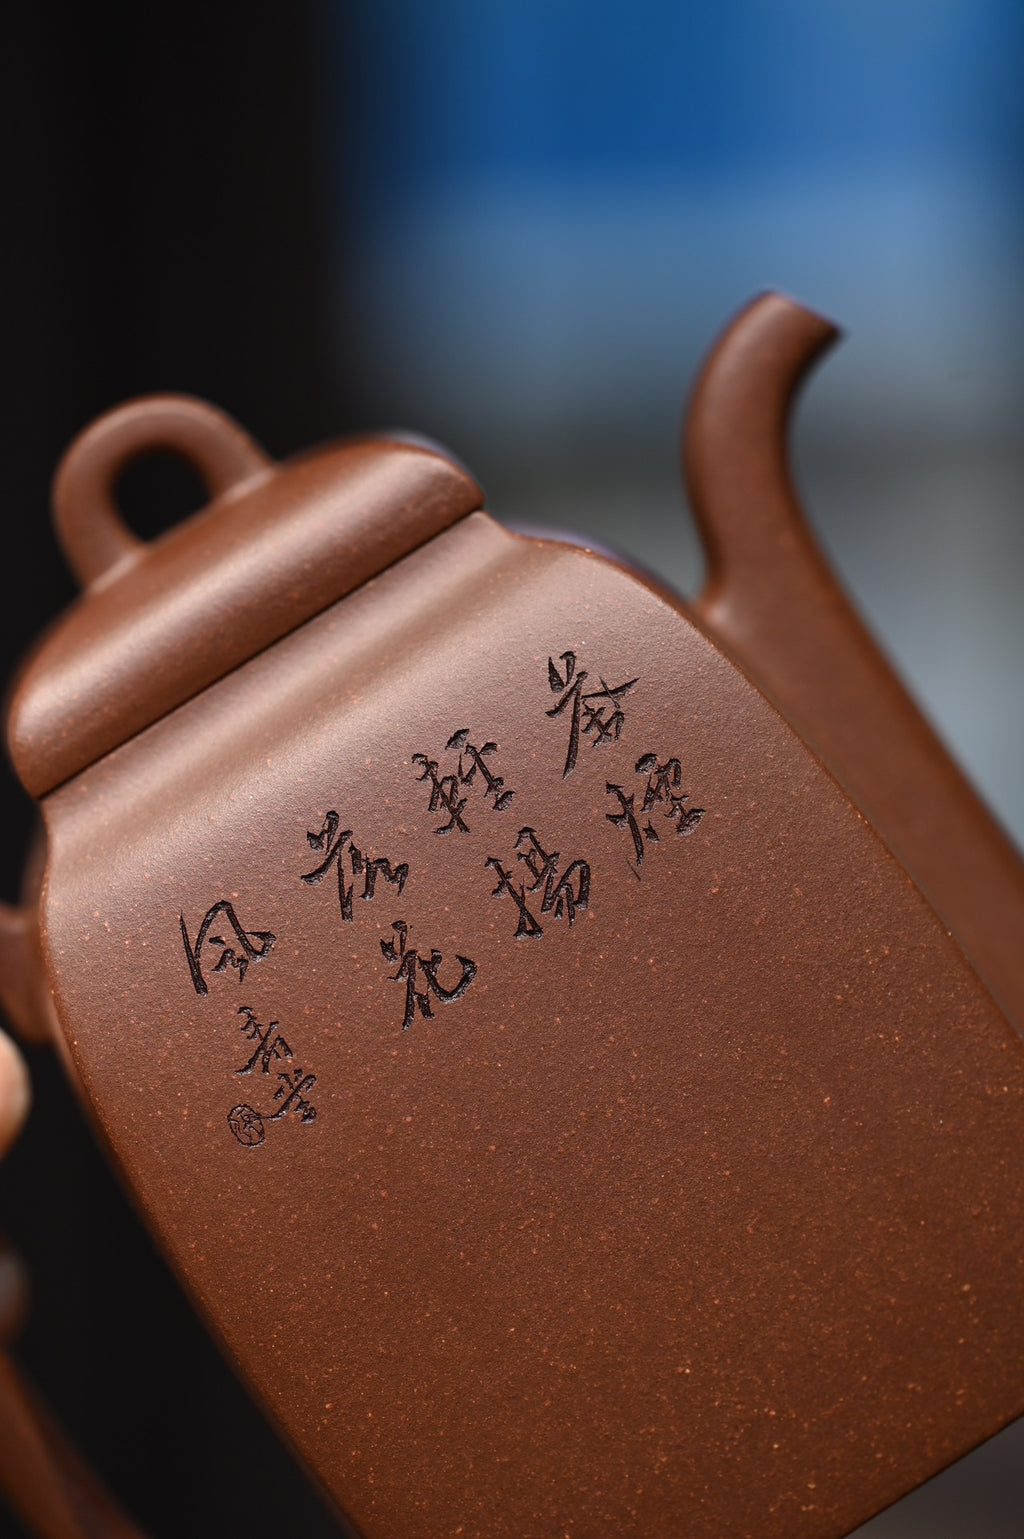 煙
輕揚
落花
風